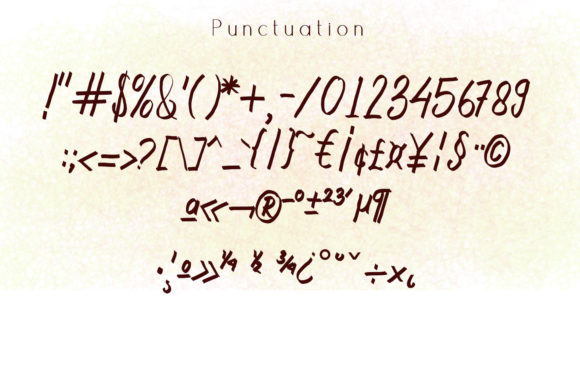 Punctuation
!"#$%&'()*+,-/0123456789
:;<=>?[\]^_`{|}~€¡¢£¤¥¦§¨©
ª«¬®¯°±²³´µ¶
·¸¹º»¼ ½ ¾¿˚˘ˇ÷×˛